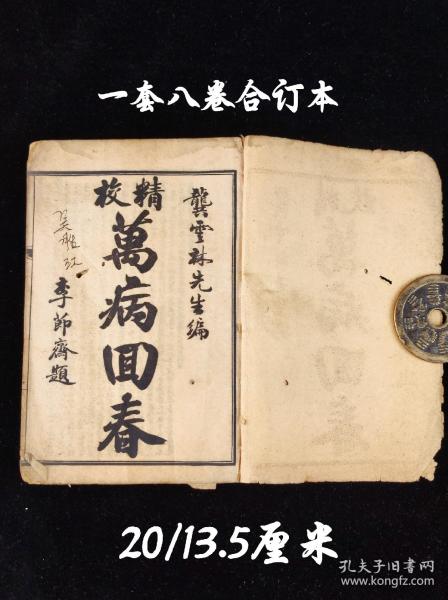 一套八卷合订本
龔雲林先生编
精校
萬病回春
李節齋題
20/13.5厘米
孔夫子旧书网
www.kongfz.com